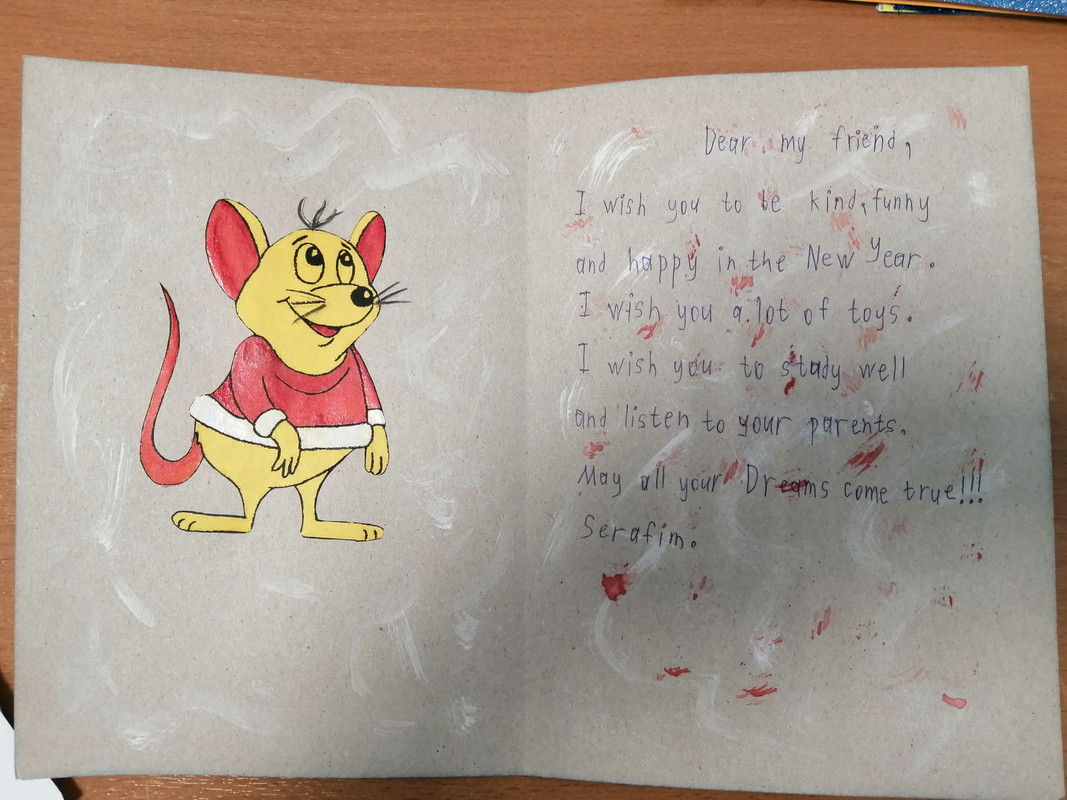 Dear my friend,
I wish you to be kind, funny
and happy in the New Year.
I wish you a lot of toys.
I wish you to study well
and listen to your parents.
May all your Dreams come true!!!
Serafim.